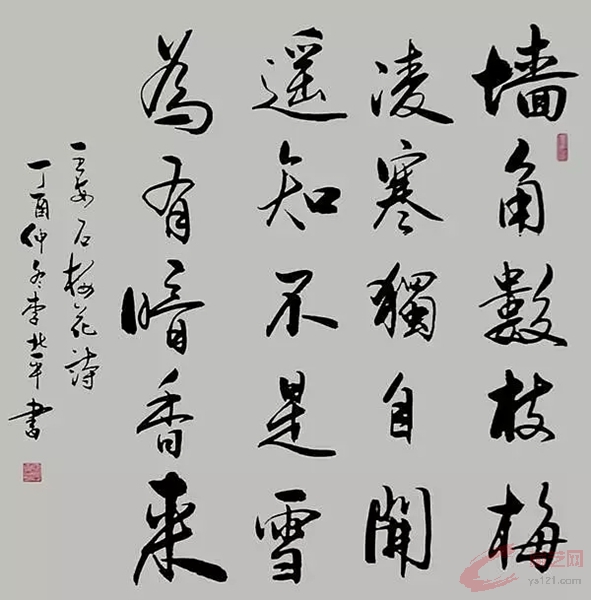 墙角數枝梅
凌寒獨自開
遥知不是雪
為有暗香来
王安石梅花詩
丁酉仲冬李北平書
ya121.com